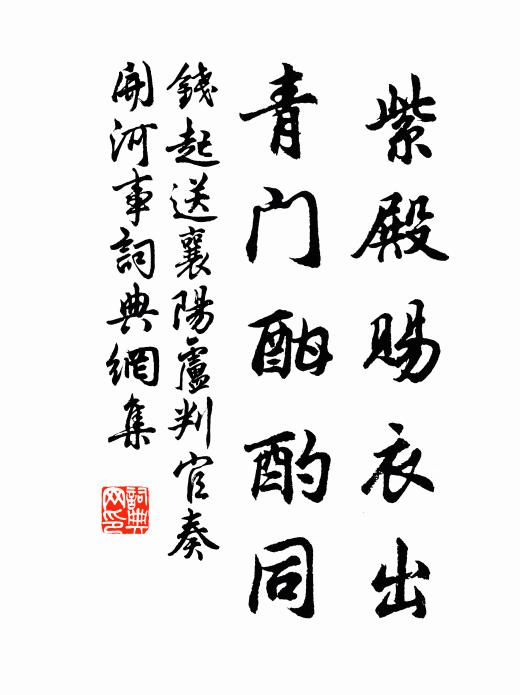 紫殿賜衣出
青门酣酌同
錢起送襄陽盧判官奏
開河事詞典網集
詞典
网印